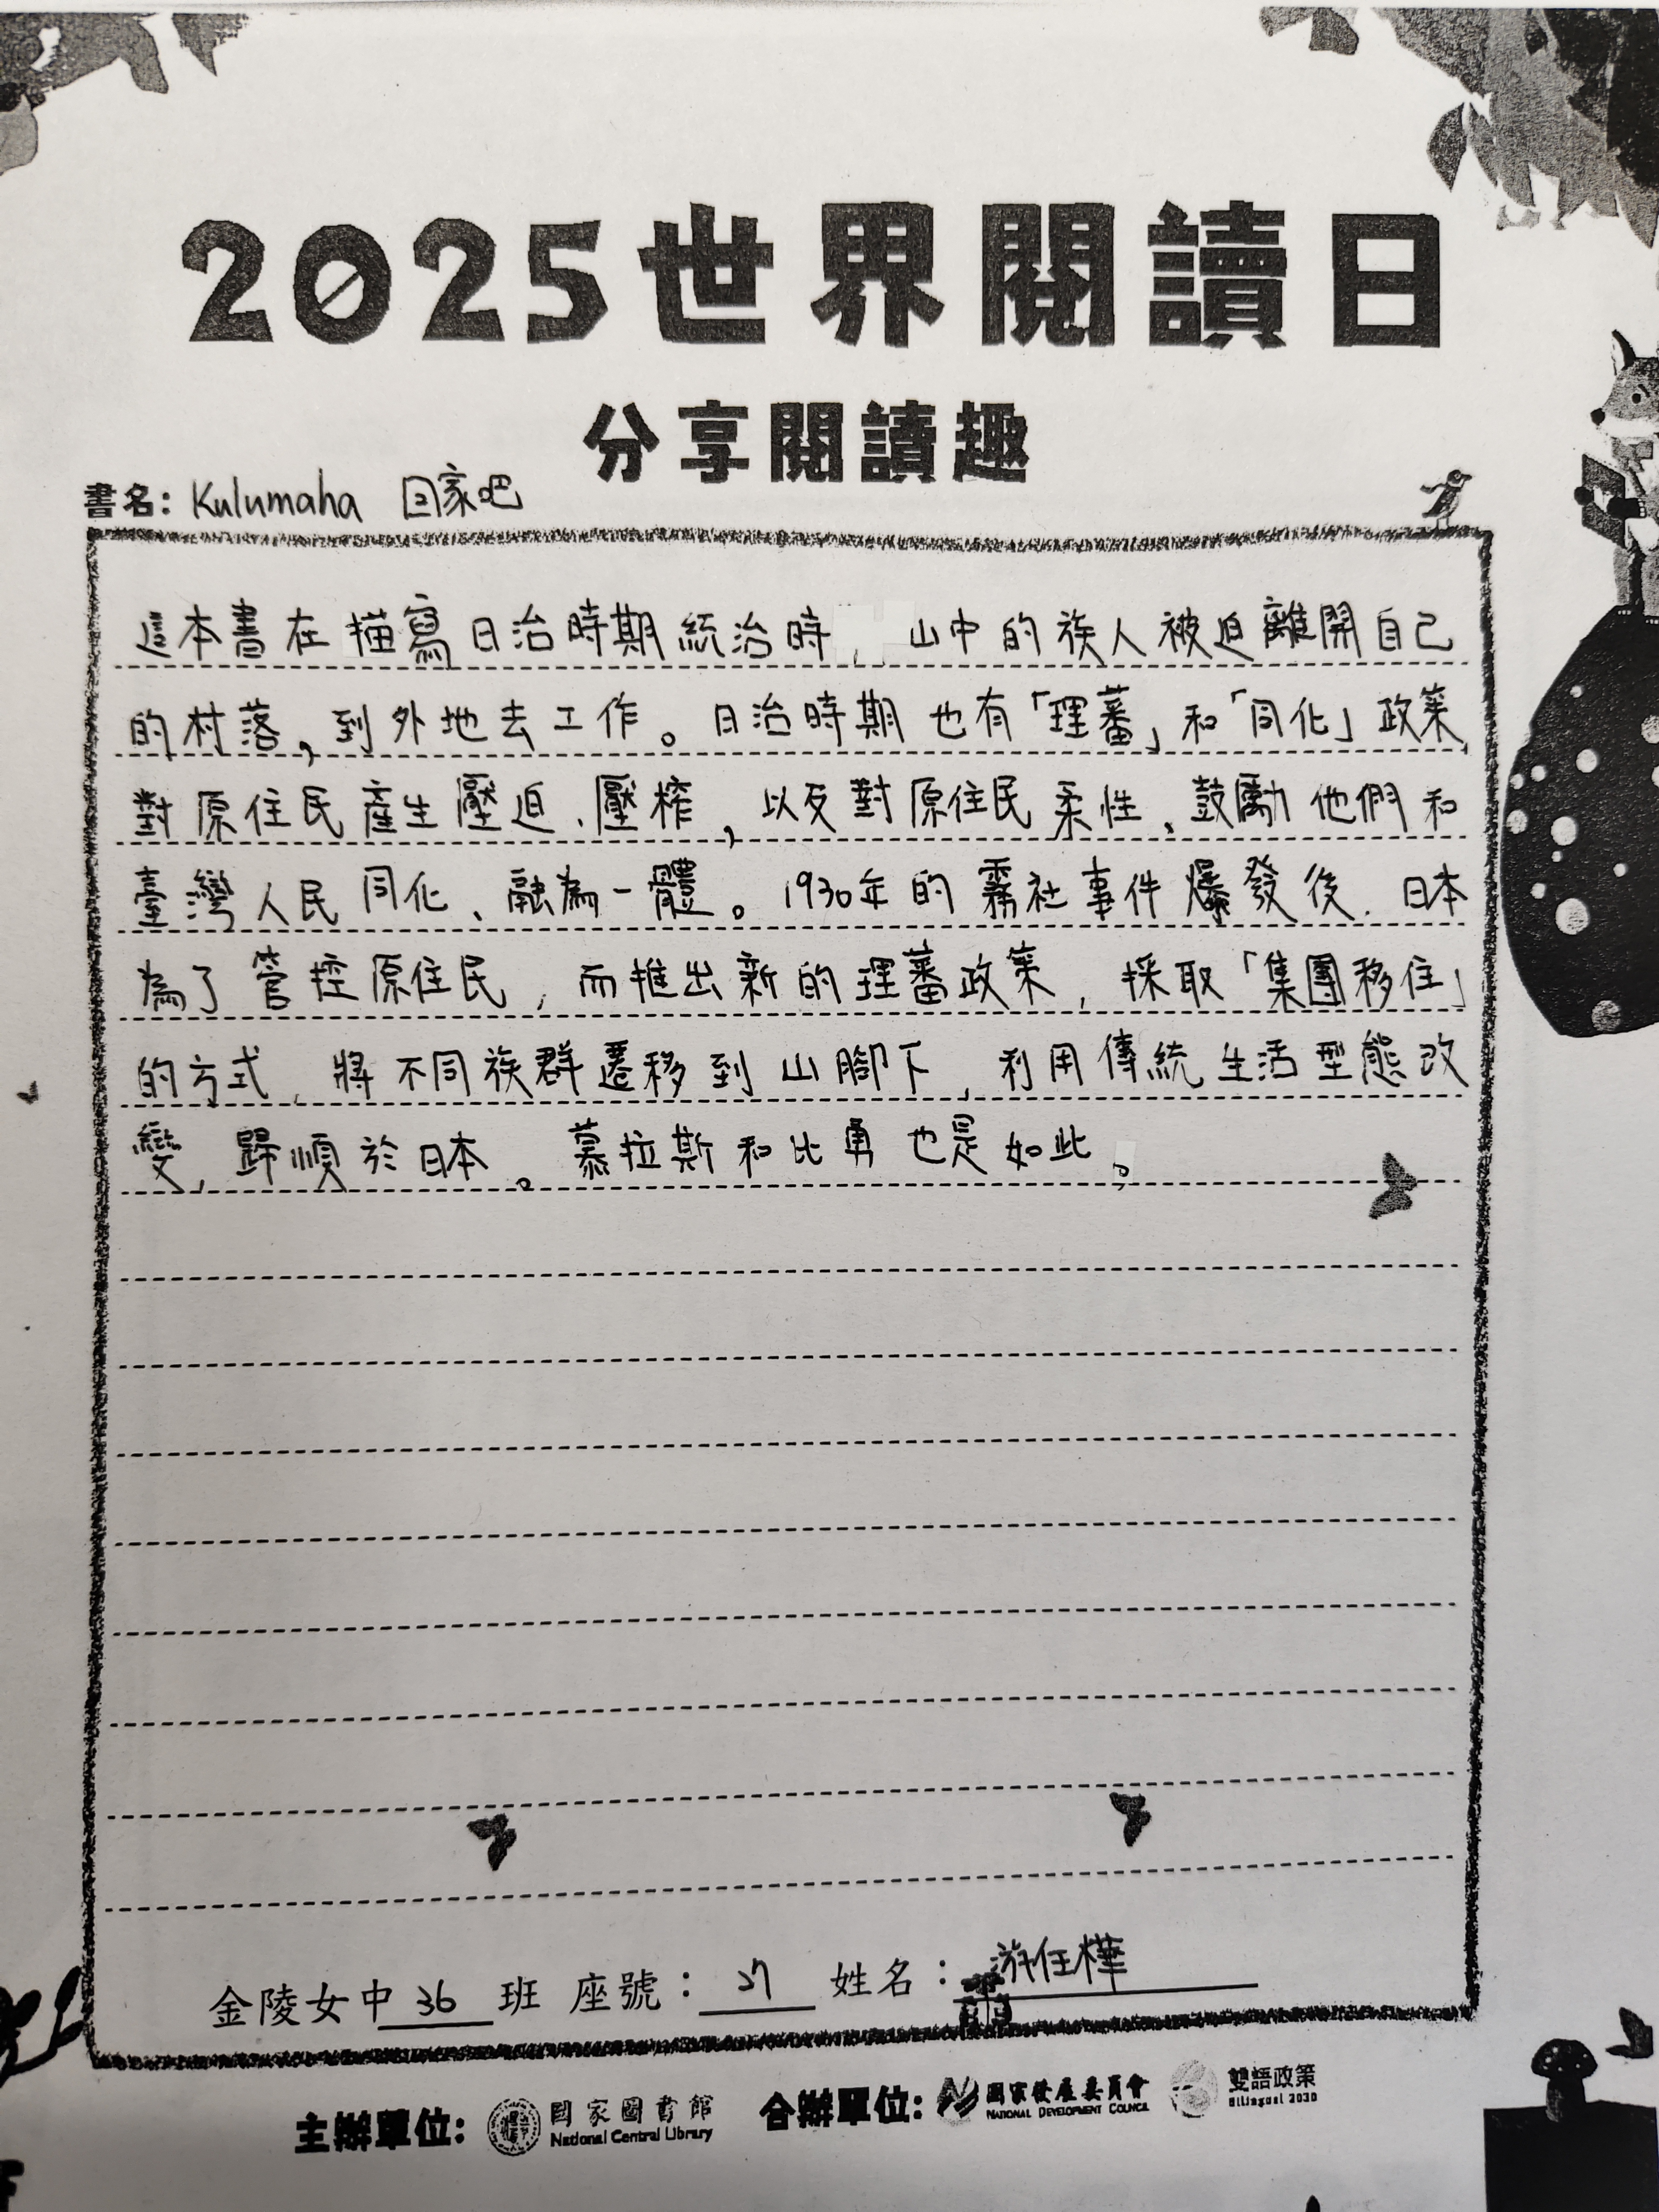 2025世界閱讀日
分享閱讀趣
書名：Kulumaha 回家吧
這本書在描寫日治時期統治時，山中的族人被迫離開自己
的村落，到外地去工作。日治時期也有「理蕃」和「同化」政策，
對原住民產生壓迫、壓榨，以及對原住民柔性、鼓勵他們和
臺灣人民同化、融為一體。1930年的霧社事件爆發後，日本
為了管控原住民，而推出新的理蕃政策，採取「集團移住」
的方式，將不同族群遷移到山腳下，利用傳統生活型態改
變，歸順於日本。慕拉斯和比勇也是如此。
金陵女中36班 座號：27 姓名：游任樺
主辦單位：國家圖書館 National Central Library 合辦單位：國家發展委員會 NATIONAL DEVELOPMENT COUNCIL 雙語政策 Bilingual 2030